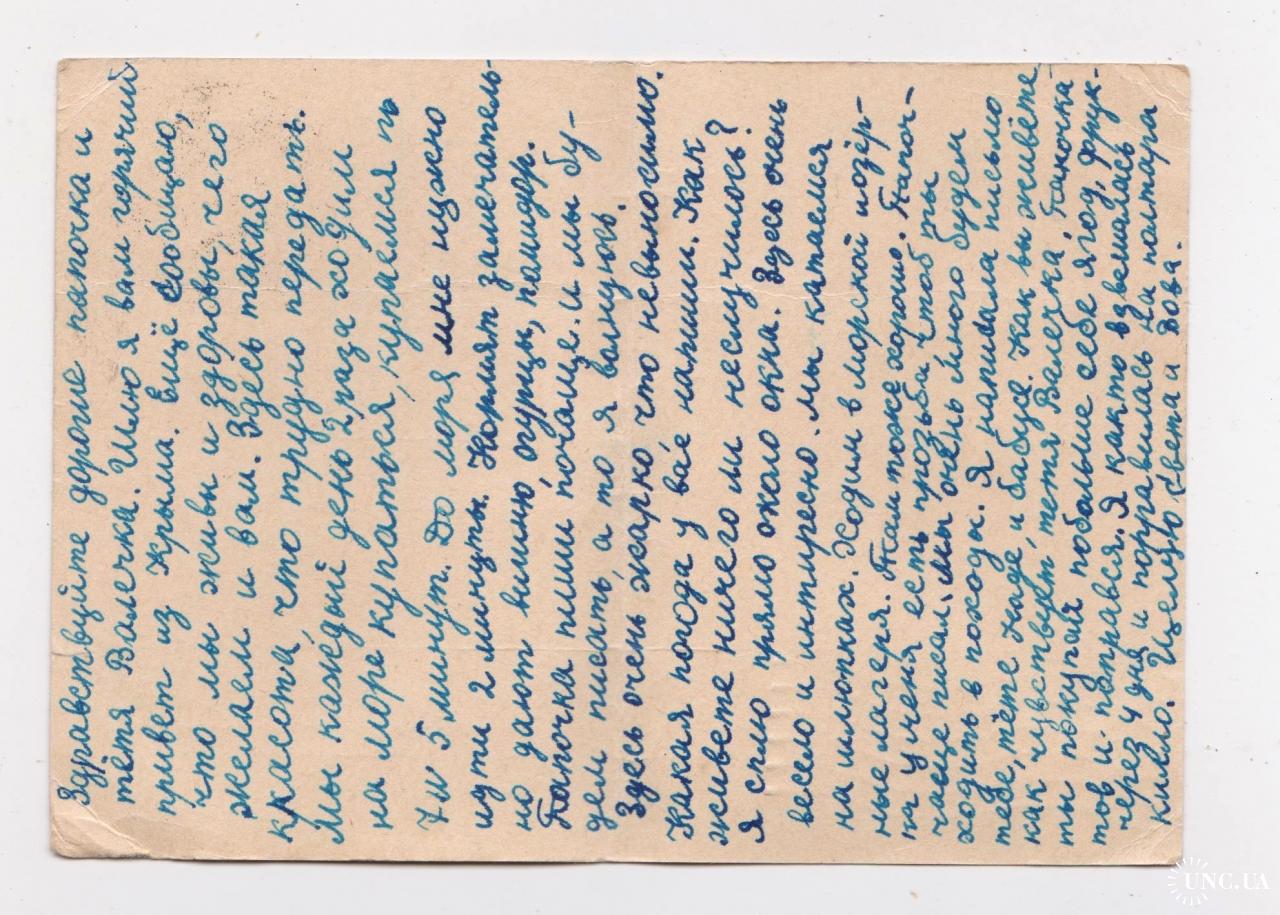 Здравствуйте дорогие папочка и
тётя Валечка. Шлю я вам горячий
привет из Крыма. Ещё сообщаю,
что мы живы и здоровы, чего
желаем и вам. Здесь такая
красота, что трудно передать.
Мы каждый день 2 раза ходим
на море купаться, купаемся по
7 и 5 минут. До моря мне нужно
идти 2 минуты. Кормят замечатель-
но дают вишню, огурцы, помидор.
Папочка пиши почаще. и мы бу-
дем писать, а то я валнуюсь.
Здесь очень жарко что невыносимо.
Какая погода у вас напиши. Как
живете ничего ли неслучилось?
Я сплю прямо около окна. Здесь очень
весело и интиресно. Мы катаемся
на шлюпках. Ходим в морской
ные лагеря. Там тоже хорошо. Папоч-
ка у меня есть прозьба чтоб ты
чаще писал. Мы очень много будем
ходить в походы. Я написала письмо
тебе, тёте Наде, и бабусе. Как вы живёте
как чувствует тетя Валечка. Папочка
ты покупай побольше себе ягод, фрук-
тов и поправся. Я както взвешалась
через 4 дня и поправилась на полтара
килло. Цełую Света и Вова.
UNC.UA